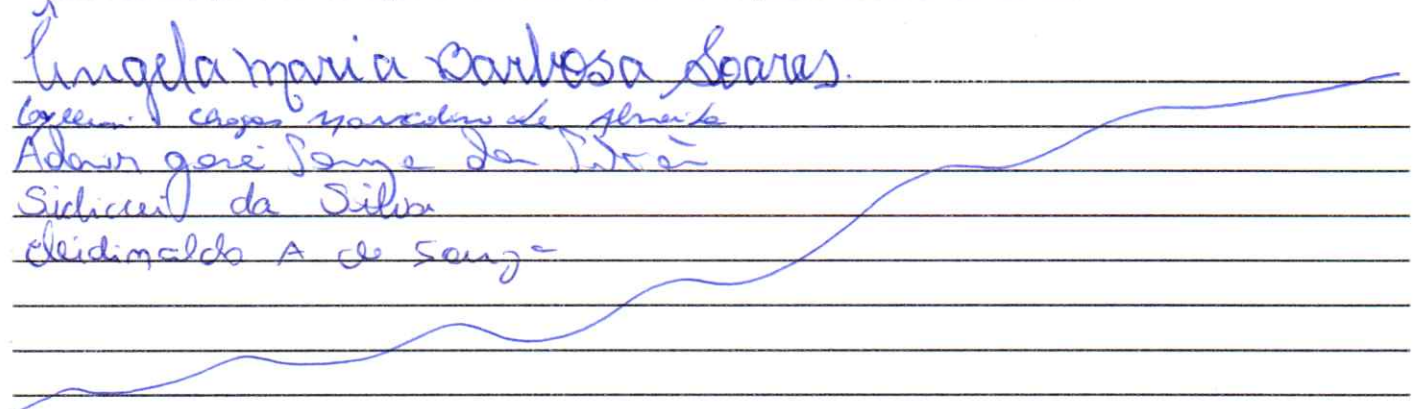 Ângela maria Barbosa Soares.
chagas de Almeida
Adair José Souza da
Sidicrei da Silva
Cleidinaldo A de Souza